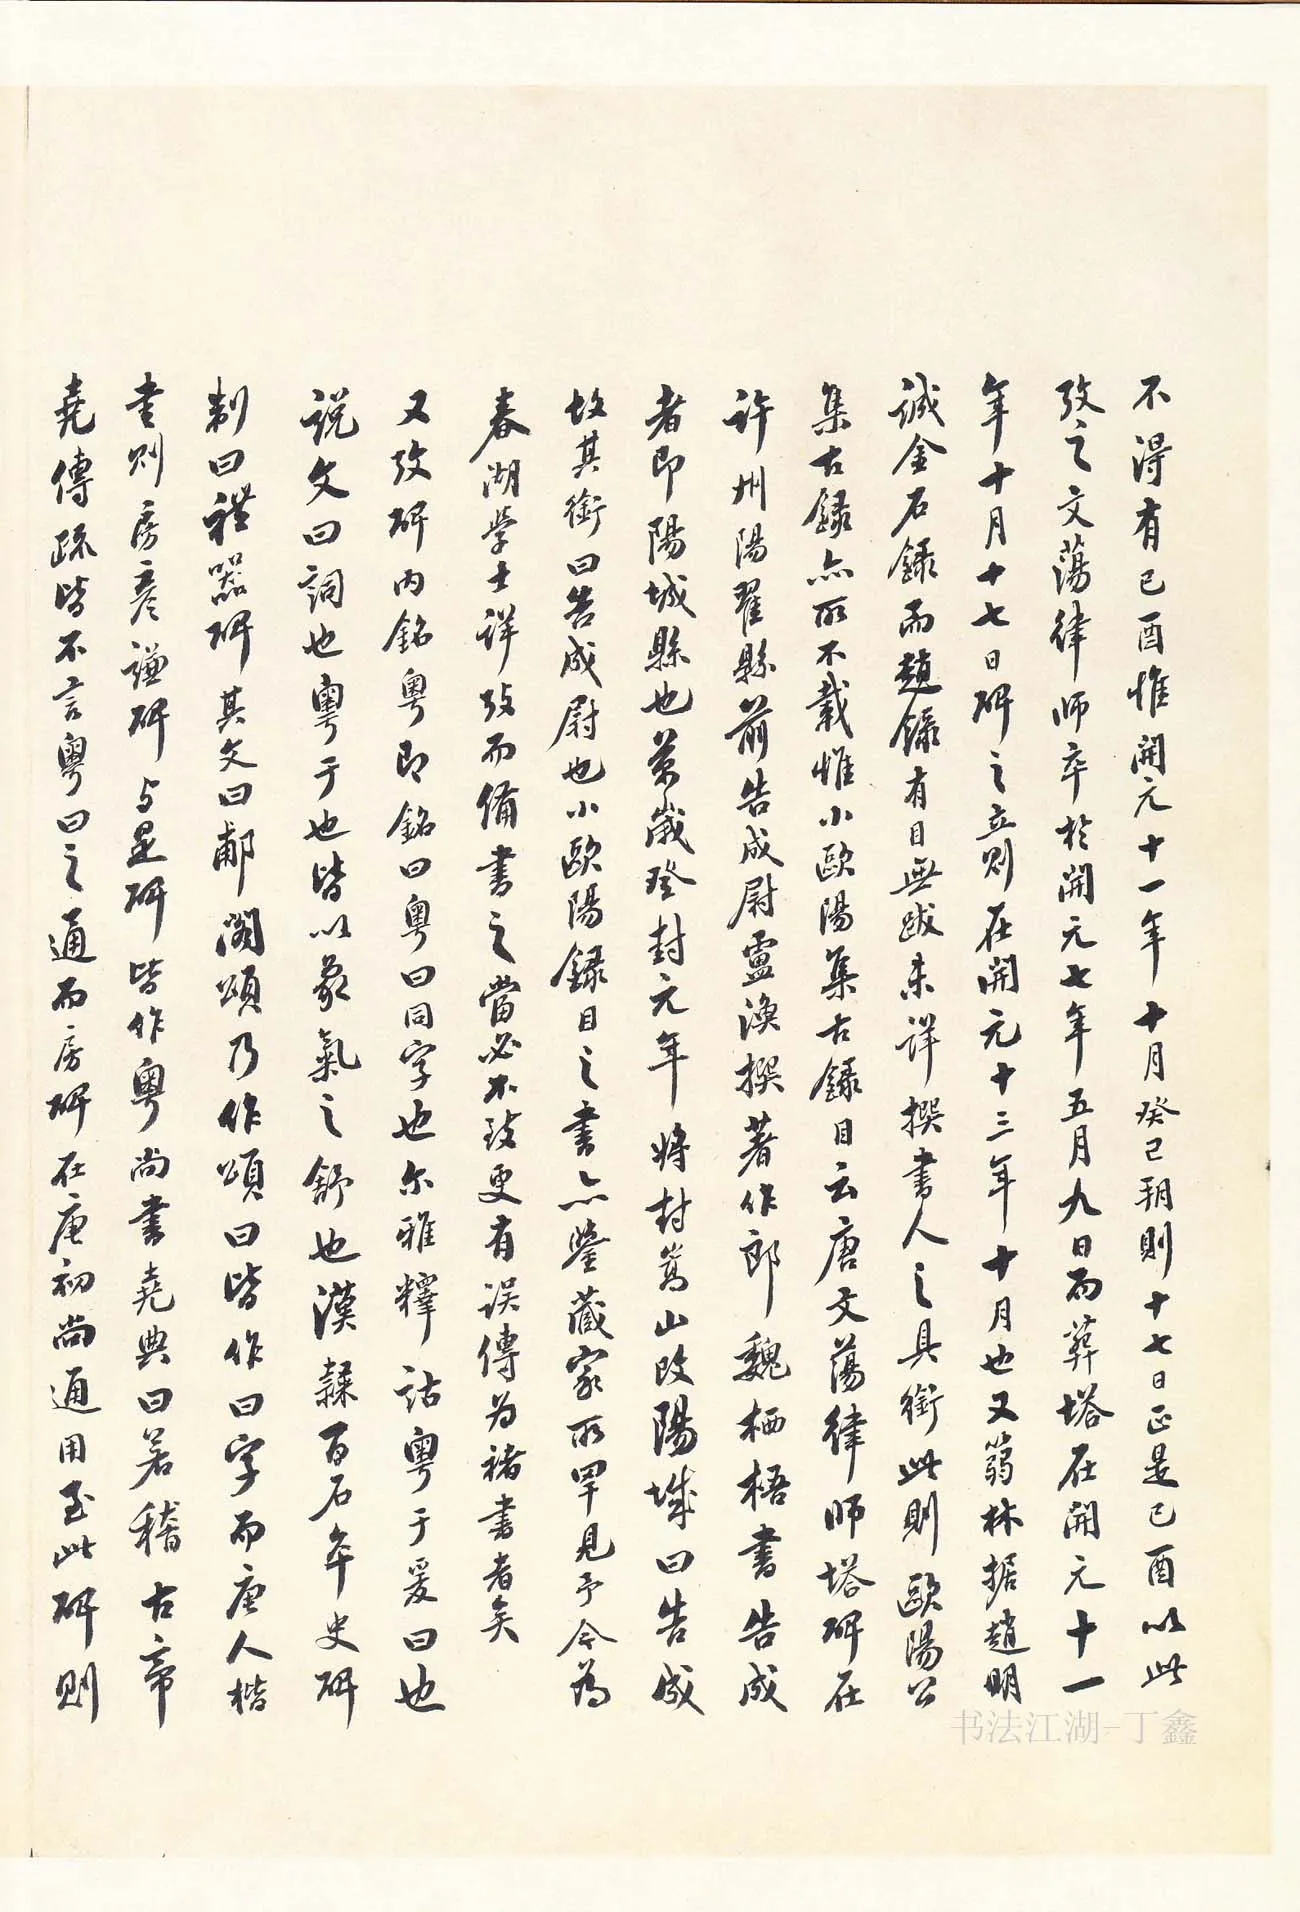 不得有己酉惟開元十一年十月癸巳朔則十七日正是己酉以此
攷之文蕩律師卒於開元七年五月九日而葬塔在開元十一
年十月十七日碑之立則在開元十三年十月也又翁林據趙明
誠金石錄而趙錄有目無跋未詳撰書人之具銜此則歐陽公
集古錄亦所不載惟小歐陽集古錄目云唐文蕩律師塔碑在
許州陽翟縣前告成尉盧渙撰著作郎魏栖梧書告成
者即陽城縣也萬歲登封元年將封嵩山改陽城曰告成
故其銜曰告成尉也小歐陽錄目之書亦鑒藏家所罕見予今為
春湖學士詳攷而備書之當必不致更有誤傳為褚書者矣
又攷碑內銘粵即銘曰粵曰同字也尔雅釋詁粵于爰曰也
說文曰詞也粵于也皆以象氣之舒也漢隸百石卒史碑
制曰禮器碑其文曰郙閣頌乃作頌曰皆作曰字而唐人楷
書則房彥謙碑与是碑皆作粵尚書堯典曰若稽古帝
堯傳疏皆不言粵曰之通而房碑在唐初尚通用至此碑則
书法江湖-丁鑫